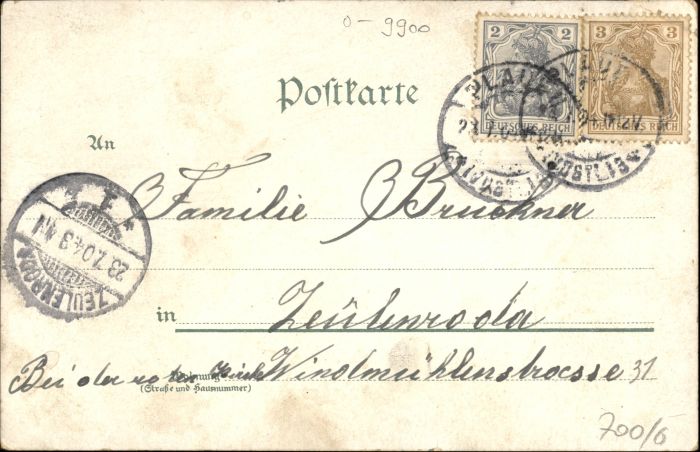 0-9900
2 3
DEUTSCHES REICH
REICH
PLAUEN
23.7.0
(VOGTL.)
Postkarte
An
Familie Bruckner
ZEULENRODA
23.7.04.3-4N
in Zeulenroda
Bei der roten Windmühlenstrasse 31
Wohnung
(Straße und Hausnummer)
700/6